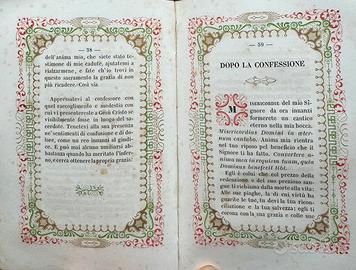 — 38 —
dell'anima mia, che siete stato te-
stimone di mie cadute, aiutatemi a
rialzarmene, e fate ch'io trovi in
questo sacramento la grazia di non
più ricadere. Così sia
Appressatevi al confessore con
quel raccoglimento e modestia con
cui vi presentereste a Gesù Cristo se
visibilmente fosse in luogo del sa-
cerdote. Tenetevi alla sua presenza
ne' sentimenti di confusione e di do-
lore, come un reo innanzi al giu-
dice. E può mai alcuno umiliarsi ab-
bastanza quando ha meritato l'infer-
no, e verrà ottenere la propria grazia?
— 39 —
DOPO LA CONFESSIONE
Misericordie del mio Si-
gnore da ora innanzi
formerete un cantico
eterno nella mia bocca.
Misericordias Domini in æter-
num cantabo. Anima mia rientra
nel tuo riposo pel beneficio che il
Signore ti ha fatto. Convertere a-
nima mea in requiem tuam, quia
Dominus benefecit tibi.
Egli è colui che col prezzo della
redenzione e del suo prezioso san-
gue ti richiama dalla morte alla vita:
Alle sue piaghe, la di cui virtù ha
guarite le tue, tu devi la tua ricon-
ciliazione e la tua salvezza; egli ti
corona con la sua grazia e colle sue